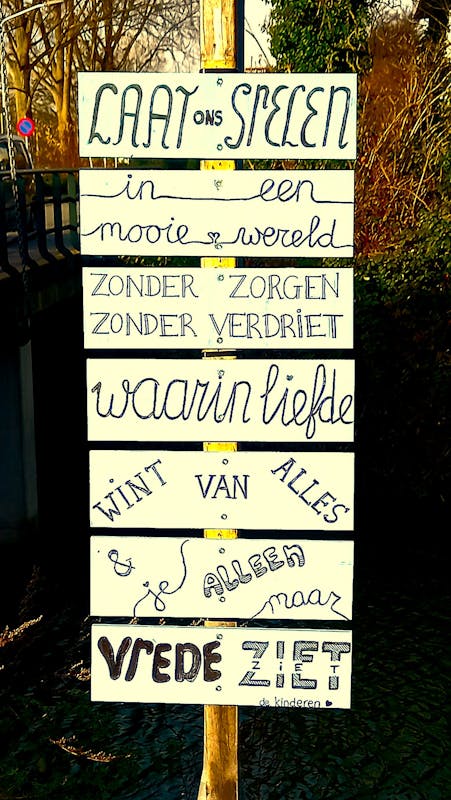 LAAT ONS SPELEN
in een
mooie wereld
ZONDER ZORGEN
ZONDER VERDRiET
waarin liefde
WINT VAN ALLES
& je ALLEEN maar
VREDE ZIET
ZIET
de kinderen ♥